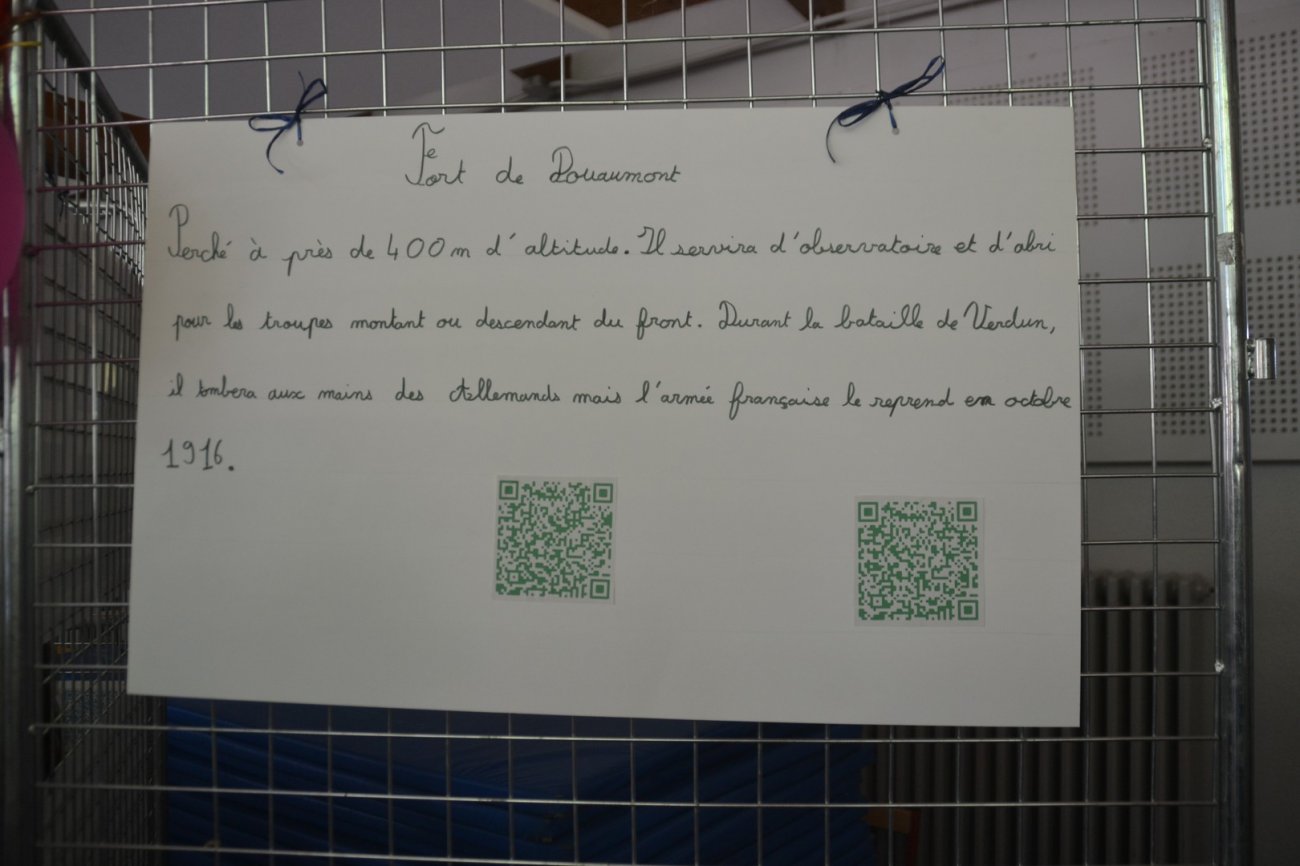 Fort de Douaumont
Perché à près de 400 m d'altitude. Il servira d'observatoire et d'abri
pour les troupes montant ou descendant du front. Durant la bataille de Verdun,
il tombera aux mains des Allemands mais l'armée française le reprend en octobre
1916.